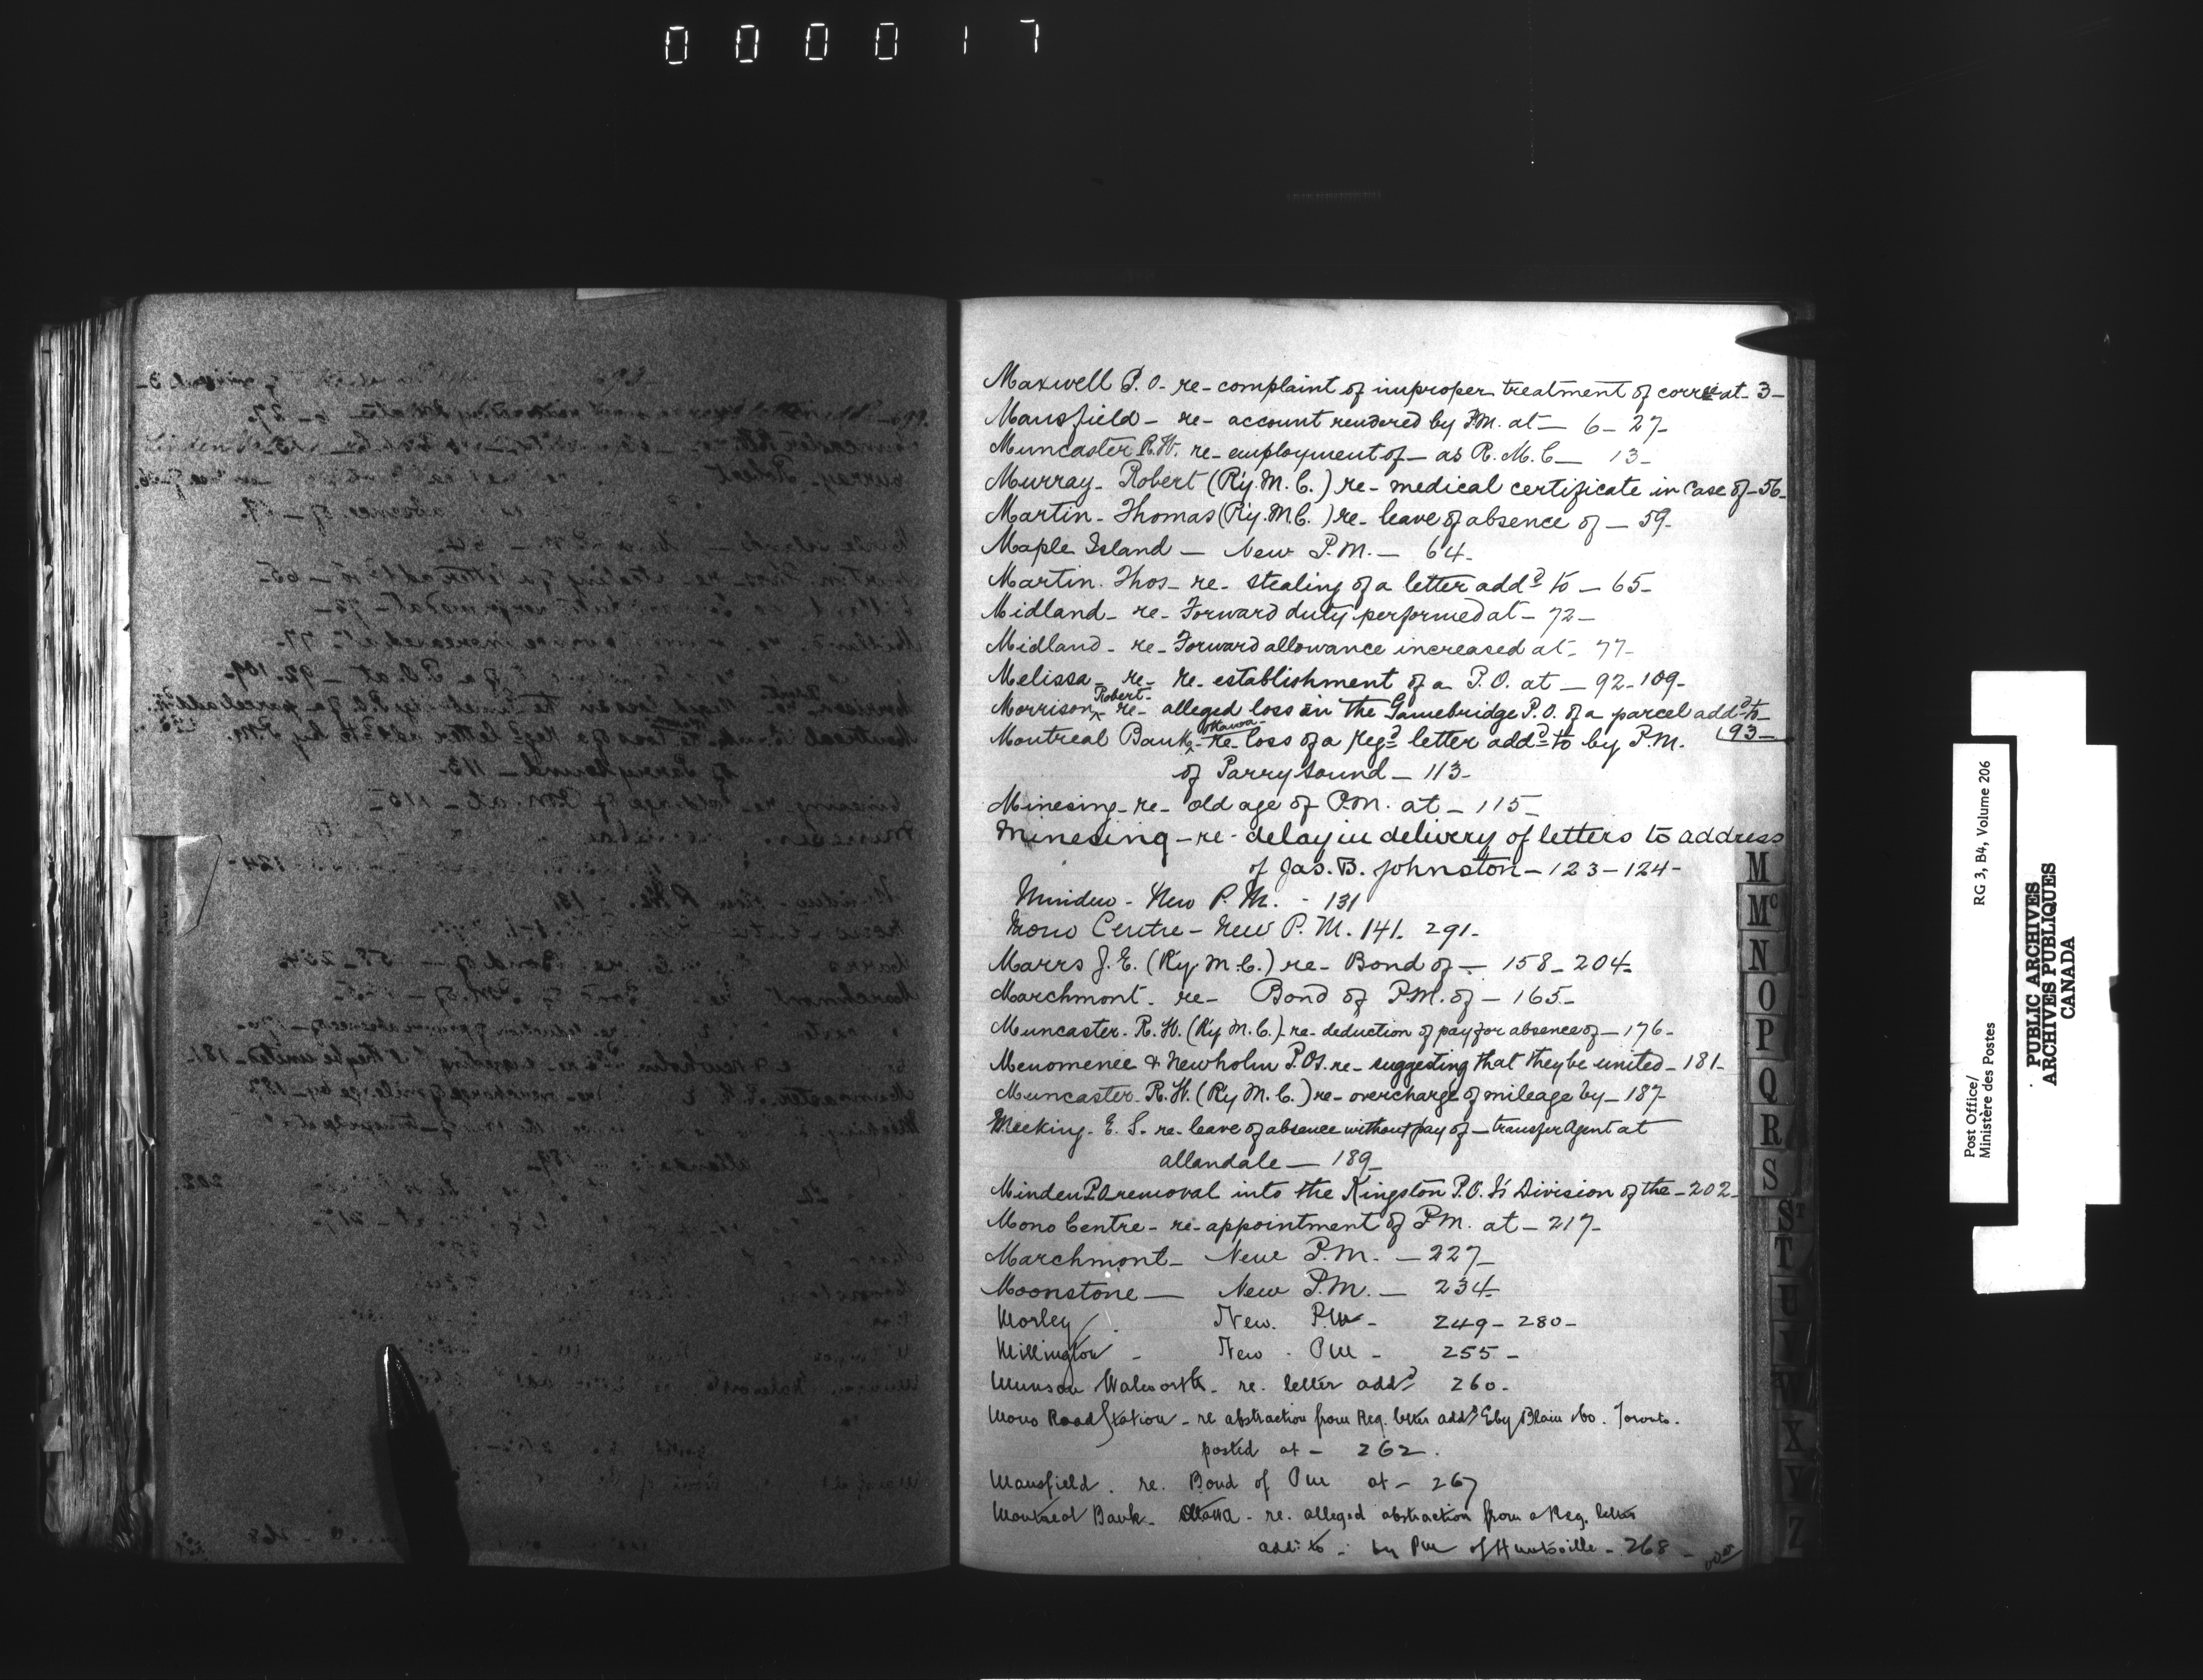 000017
Maxwell P.O. re- complaint of improper treatment of corrce at- 3-
Mansfield - re- account rendered by P.M. at- 6- 27-
Muncaster R.H. re- employment of- as R.M.C- 13-
Murray- Robert (R'y. M. C.) re- medical certificate in case of- 56-
Martin- Thomas (R'y. M.C.) re- leave of absence of - 59-
Maple Island - New P.M. - 64-
Martin. Thos- re- stealing of a letter addd to - 65-
Midland- re- Forward duty performed at - 72-
Midland- re- Forward allowance increased at- 77-
Melissa- re- re-establishment of a P.O. at - 92-109-
Morrison Robert- re- alleged loss in the Gamebridge P.O. of a parcel addd to- 93-
Montreal Bank- Ottawa- re- loss of a regd letter addd to by P.M.
of Parry Sound - 113-
Minesing- re- old age of P.M. at - 115-
Minesing - re- delay in delivery of letters to address
of Jas. B. Johnston - 123-124-
Minden - New P.M. - 131
Mono Centre - New P.M. 141. 291-
Marrs J. E. (Ry. M. C.) re- Bond of - 158-204-
Marchmont. re- Bond of P.M. of - 165-
Muncaster. R. H. (R'y M. C.) - re- deduction of pay for absence of - 176-
Menomenee & Newholm P.Os. re- suggesting that they be united- 181-
Muncaster- R. H. (R'y M. C.) re- overcharge of mileage by- 187-
Meeking- E. S. re- leave of absence without pay of - transfer Agent at
allandale - 189-
Minden P.O removal into the Kingston P.O. Is Division of the - 202-
Mono Centre - re- appointment of P.M. at - 217-
Marchmont- New P.M. - 227-
Moonstone - New P.M. - 234-
Morley New. P.M - 249 - 280-
Millington - New - P M - 255 -
Munson Walworth - re. letter addd 260-
Mono Road Station - re abstraction from Reg. letter addd Eby Blain & Co. Toronto.
posted at - 262.
Mansfield. re. Bond of P M at - 267
Montreal Bank- Ottawa - re. alleged abstraction from a Reg. letter
add: to - by P M of Huntsville - 268 -
M
Mc
N
O
P
Q
R
S
ST
T
U
V
X
Y
Z
Post Office/ RG 3, B4, Volume 206
Ministère des Postes
PUBLIC ARCHIVES
ARCHIVES PUBLIQUES
CANADA